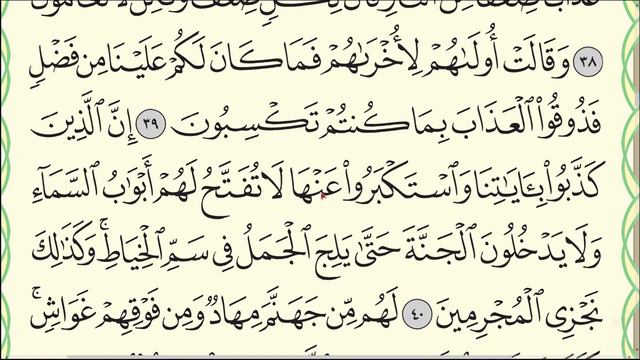 عَذَابًا ضِعْفًا مِّنَ ٱلنَّارِ قَالَ لِكُلٍّ ضِعْفٌ وَلَٰكِن لَّا تَعْلَمُونَ
٣٨ وَقَالَتْ أُولَىٰهُمْ لِأُخْرَىٰهُمْ فَمَا كَانَ لَكُمْ عَلَيْنَا مِن فَضْلٍ
فَذُوقُوا۟ ٱلْعَذَابَ بِمَا كُنتُمْ تَكْسِبُونَ ٣٩ إِنَّ ٱلَّذِينَ
كَذَّبُوا۟ بِـَٔايَٰتِنَا وَٱسْتَكْبَرُوا۟ عَنْهَا لَا تُفَتَّحُ لَهُمْ أَبْوَٰبُ ٱلسَّمَآءِ
وَلَا يَدْخُلُونَ ٱلْجَنَّةَ حَتَّىٰ يَلِجَ ٱلْجَمَلُ فِى سَمِّ ٱلْخِيَاطِ ۚ وَكَذَٰلِكَ
نَجْزِى ٱلْمُجْرِمِينَ ٤٠ لَهُم مِّن جَهَنَّمَ مِهَادٌ وَمِن فَوْقِهِمْ غَوَاشٍ ۚ